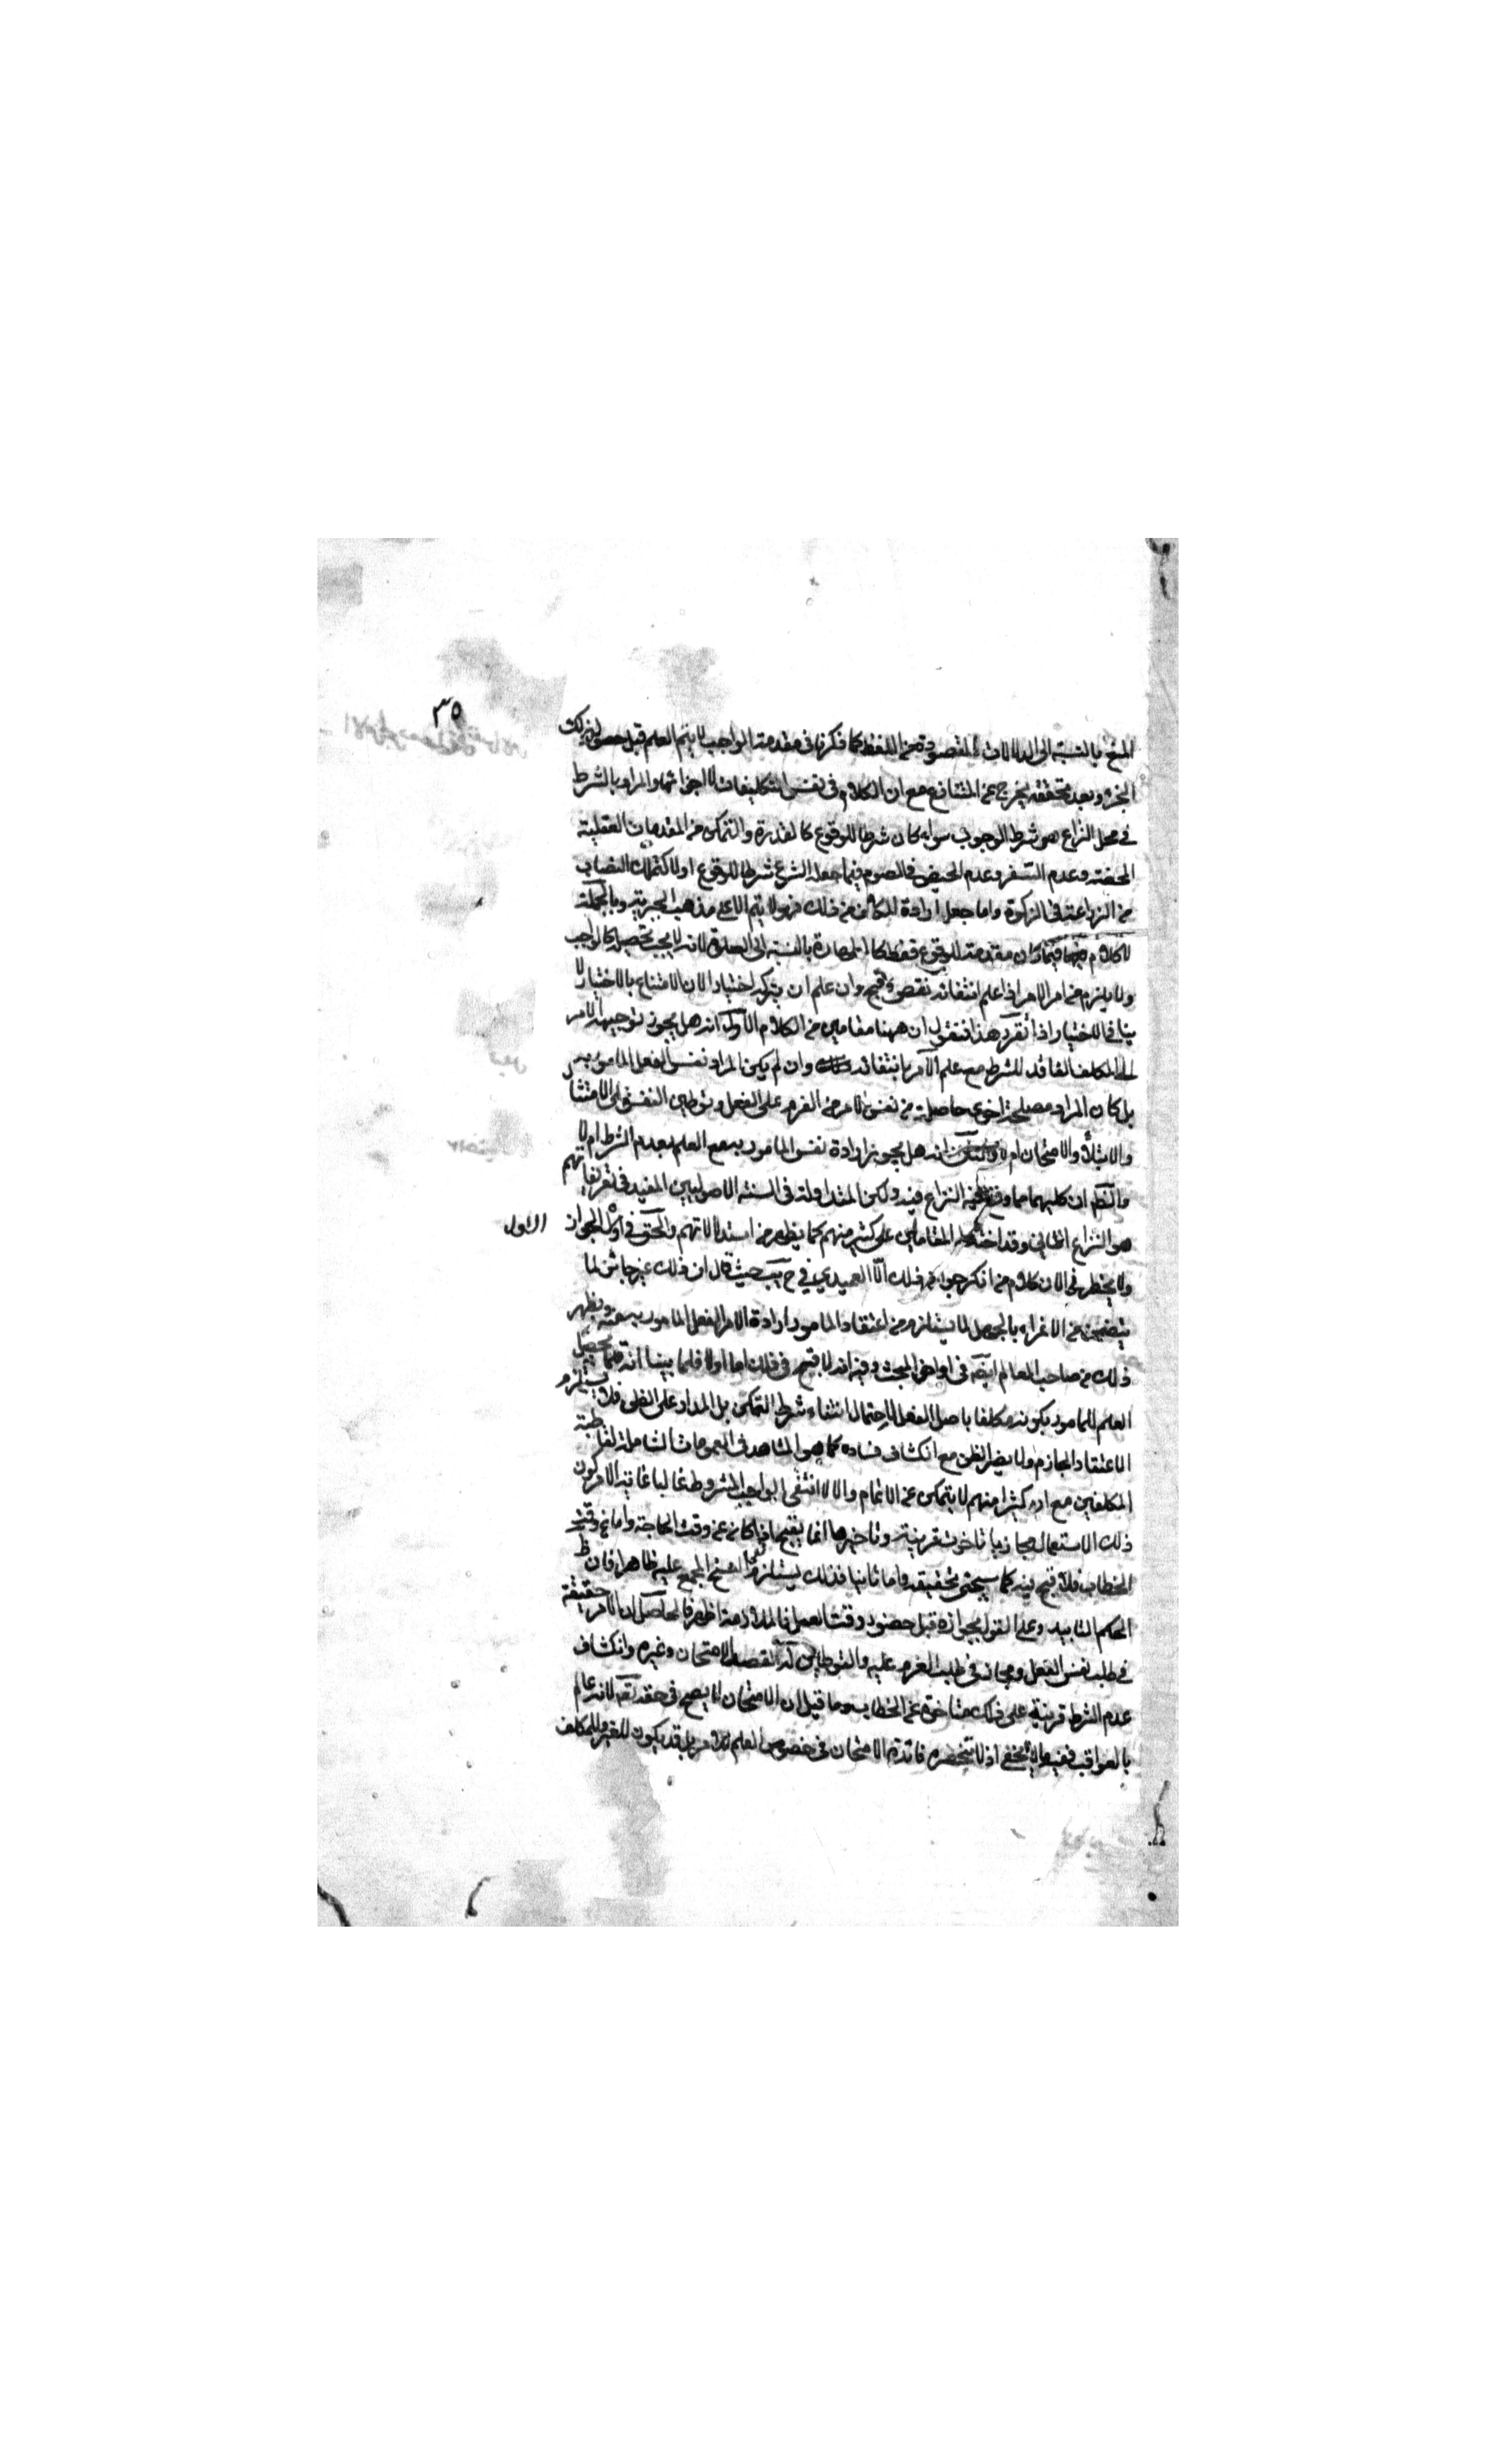 ٣٥
المخ بالنسبة الى الدلالات المقصودة من اللفظ كما ذكرنا في مقدمة الواجب لا يتم العلم قبل حصول ذلك
الجزء وبعد تحققه يخرج عن المتنازع مع ان الكلام في نفس التكليفات لا اجزائها والمراد بالشرط
في محل النزاع هو شرط الوجوب سواء كان شرطا للوقوع كالقدرة والتمكن من المقدمات العقلية
المحضة وعدم السفر وعدم الحيض في الصوم فيما جعله الشرع شرطا للوقوع او لا كتملك النصاب
من الزراعة في الزكوة واما جعل ارادة المكلف من ذلك فهو لا يتم الا على مذهب الجبرية وبالجملة
لا كلام فيما كان مقدمة للوقوع فقط كالطهارة بالنسبة الى الصلوة لانه لا يجب تحصيله كالواجب
ولا يلزم من امر الامر اذا علم انتفائه نقص وقبح وان علم ان يتركه اختيارا لان الامتناع بالاختيار لا
ينافي الاختيار اذا تقرر هذا فنقول ان ههنا مقامين من الكلام الاول انه هل يجوز توجيه الامر
الى المكلف الفاقد للشرط مع علم الآمر بانتفائه وان لم يكن المراد نفس الفعل المامور به
بل كان المراد مصلحة اخرى حاصلة من نفس الامر من العزم على الفعل وتوطين النفس على الامتثال
والابتلاء والامتحان ام لا انه هل يجوز ارادة نفس المامور به مع العلم بعدم الشرط ام لا
والظ ان كليهما مما وقع النزاع فيه ولكن المتداولة في السنة الاصوليين المفيد في تفريعاتهم
هو النزاع الثاني وقد اختلط المقامان على كثير منهم كما يظهر من استدلالاتهم والحق في الاول الجواز
الاول
ولا يحضرني الان كلام من انكر جواز ذلك الا العميدي في ح يب حيث قال ان ذلك غير جائز لما
يتضمن من الاغراء بالجهل لما يستلزم من اعتقاد المامور ارادة الامر الفعل المامور به منه ويظهر
ذلك من صاحب المعالم ايضا في اواخر المبحث وفيه انه لا قبح في ذلك اما اولا فلما بينا انه قلما يحصل
العلم للمامور بكونه مكلفا باصل الفعل لاحتمال انتفاء شرط التمكن بل المدار على الظن فلا يستلزم
الاعتقاد الجازم ولا يضر الظن مع انكشاف فساده كما هو المشاهد في العمومات الشاملة لقاطبة
المكلفين مع ان كثيرا منهم لا يتمكن عن الاتمام والا لانتفى الواجب المشروط غالبا غاية الامر كون
ذلك الاستعمال مجازيا تاخرت قرينته وتاخيرها انما يقبح اذا كان عن وقت الحاجة واما عن وقت
الخطاب فلا قبح فيه كما سيجئ تحقيقه واما ثانيا فذلك يستلزم نفي النسخ المجمع عليه ظاهرا فان ظ
الحكم التابيد وعلى القول بجوازه قبل حضور وقت العمل فالملازمة اظهر فالحاصل ان الامر حقيقة
في طلب نفس الفعل ومجاز في طلب العزم عليه والتوطين له لقصد الامتحان وغيره وانكشاف
عدم الشرط قرينة على ذلك متاخرة عن الخطاب وما قيل ان الامتحان لا يصح في حقه تعا لانه عالم
بالعواقب ففيه ما لا يخفى اذ لا تنحصر فائدة الامتحان في خصوص العلم للامر بل قد يكون للغير وللمكلف